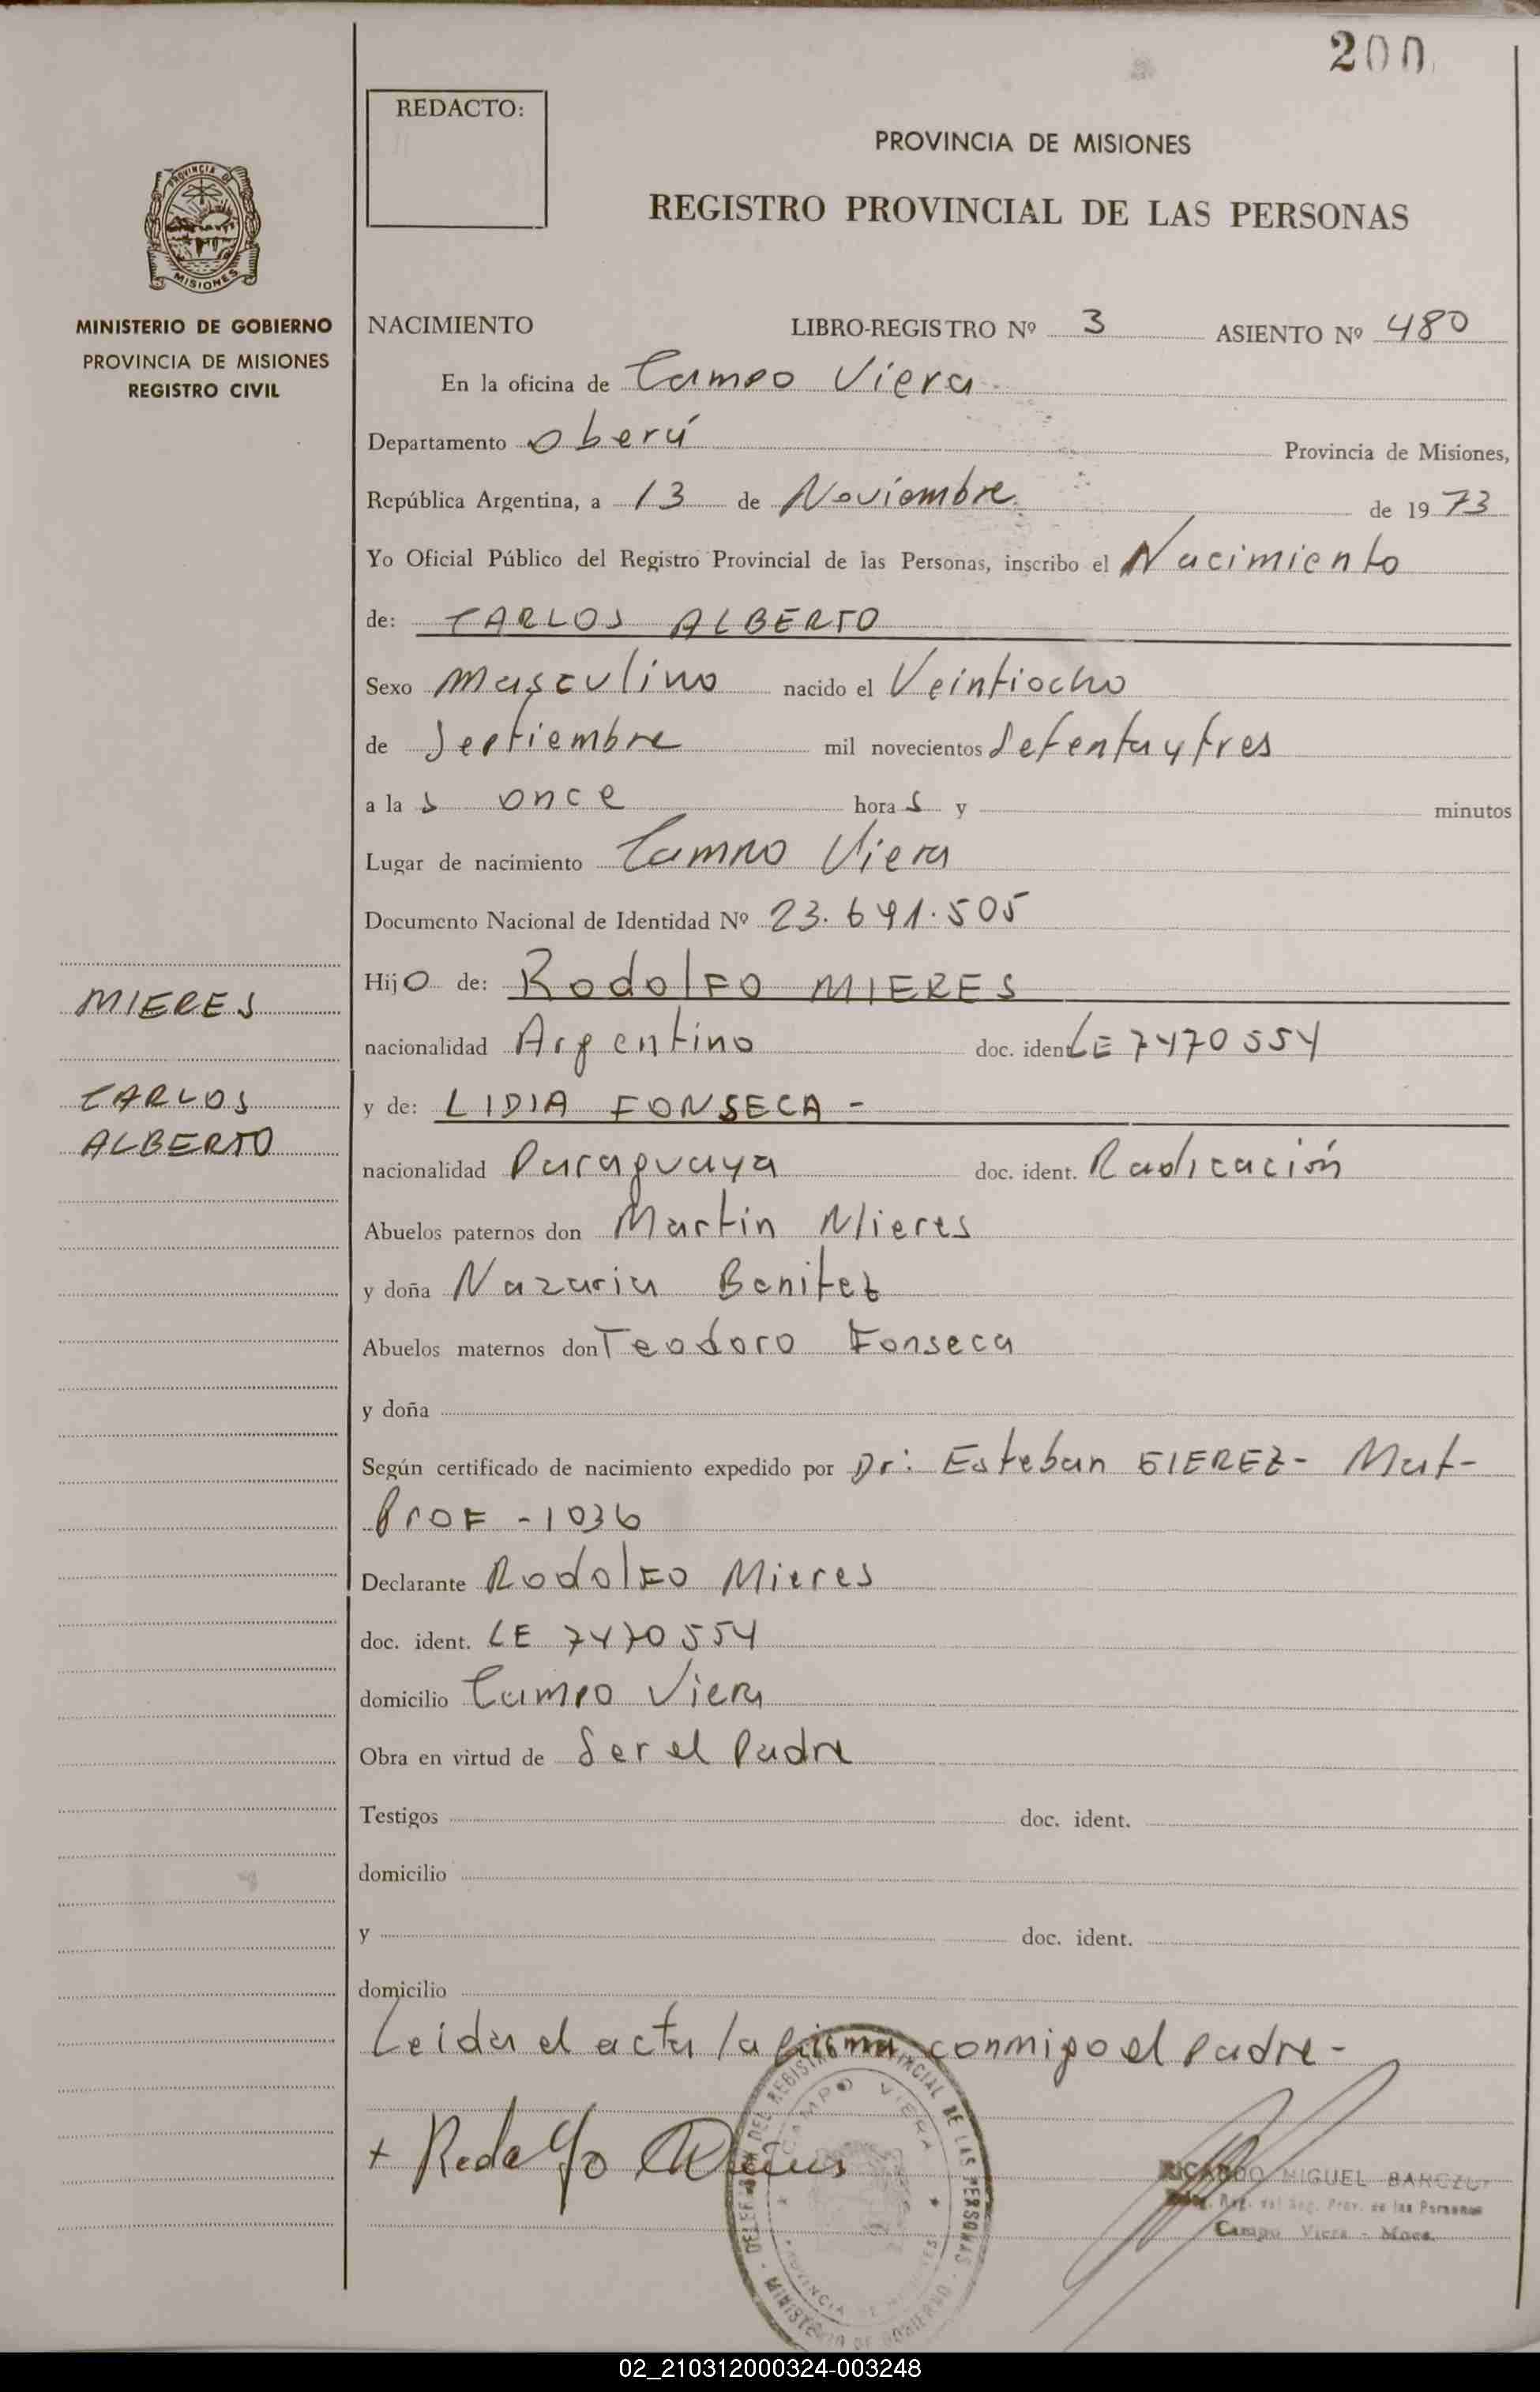 200
REDACTO:
PROVINCIA DE MISIONES
REGISTRO PROVINCIAL DE LAS PERSONAS
PROVINCIA DE
MISIONES
MINISTERIO DE GOBIERNO
PROVINCIA DE MISIONES
REGISTRO CIVIL
NACIMIENTO LIBRO-REGISTRO Nº 3 ASIENTO Nº 480
En la oficina de Campo Viera
Departamento Oberá Provincia de Misiones,
República Argentina, a 13 de Noviembre de 1973
Yo Oficial Público del Registro Provincial de las Personas, inscribo el Nacimiento
de: CARLOS ALBERTO
Sexo Masculino nacido el Veintiocho
de Septiembre mil novecientos Setenta y tres
a las once horas y minutos
Lugar de nacimiento Campo Viera
Documento Nacional de Identidad Nº 23.691.505
Hijo de: Rodolfo MIERES
nacionalidad Argentino doc. ident LE 7470554
y de: LIDIA FONSECA -
nacionalidad Paraguaya doc. ident. Radicación
Abuelos paternos don Martin Mieres
y doña Nazaria Benitez
Abuelos maternos don Teodoro Fonseca
y doña
Según certificado de nacimiento expedido por Dr: Esteban - Mat-
Prof - 1036
Declarante Rodolfo Mieres
doc. ident. LE 7470554
domicilio Campo Viera
Obra en virtud de Ser el Padre
Testigos doc. ident.
domicilio
y doc. ident.
domicilio
Leida el acta la firma conmigo el Padre -
+ Rodolfo Mieres
MIERES
CARLOS
ALBERTO
DELEGACION DEL REGISTRO PROVINCIAL DE LAS PERSONAS
CAMPO VIERA
PROVINCIA DE MISIONES
MINISTERIO DE GOBIERNO
RICARDO MIGUEL
Reg. Prov. de las Personas
Campo Viera - Mnes.
02_210312000324-003248